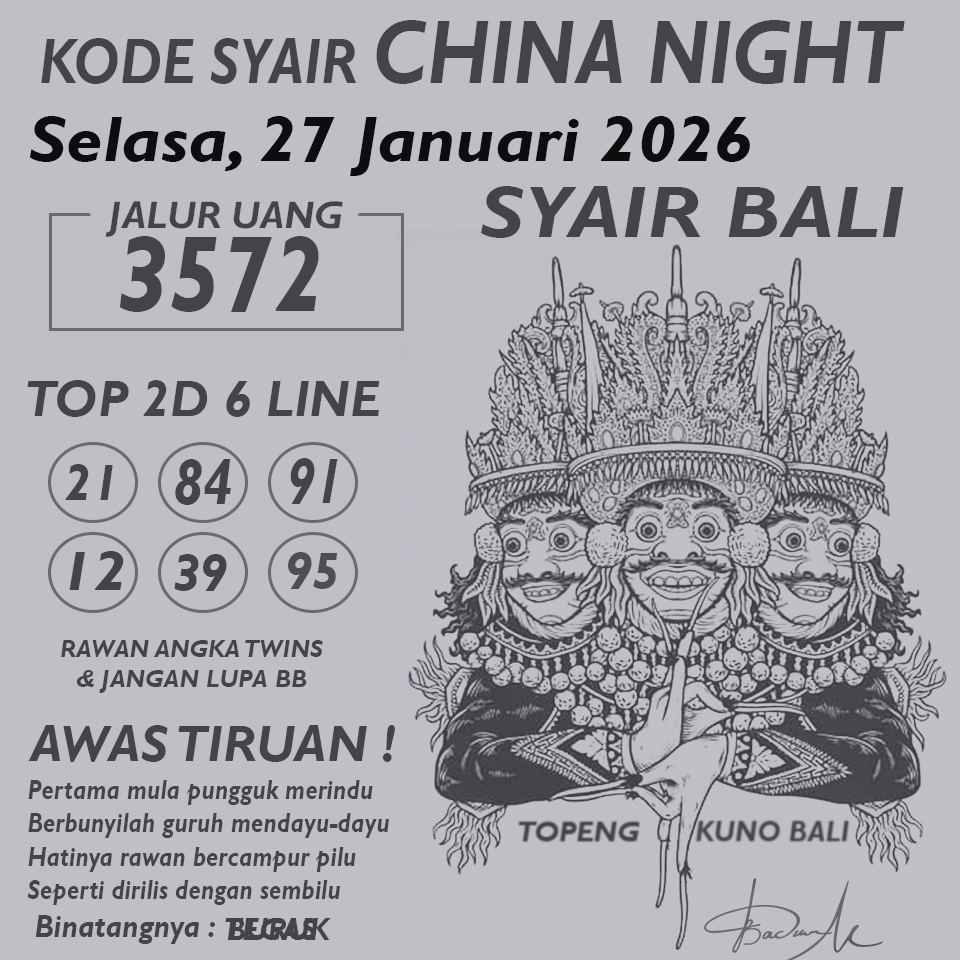 KODE SYAIR CHINA NIGHT
Selasa, 27 Januari 2026
SYAIR BALI
JALUR UANG
3572
TOP 2D 6 LINE
21 84 91
12 39 95
RAWAN ANGKA TWINS
& JANGAN LUPA BB
AWAS TIRUAN !
Pertama mula pungguk merindu
Berbunyilah guruh mendayu-dayu
Hatinya rawan bercampur pilu
Seperti dirilis dengan sembilu
Binatangnya :
TOPENG KUNO BALI